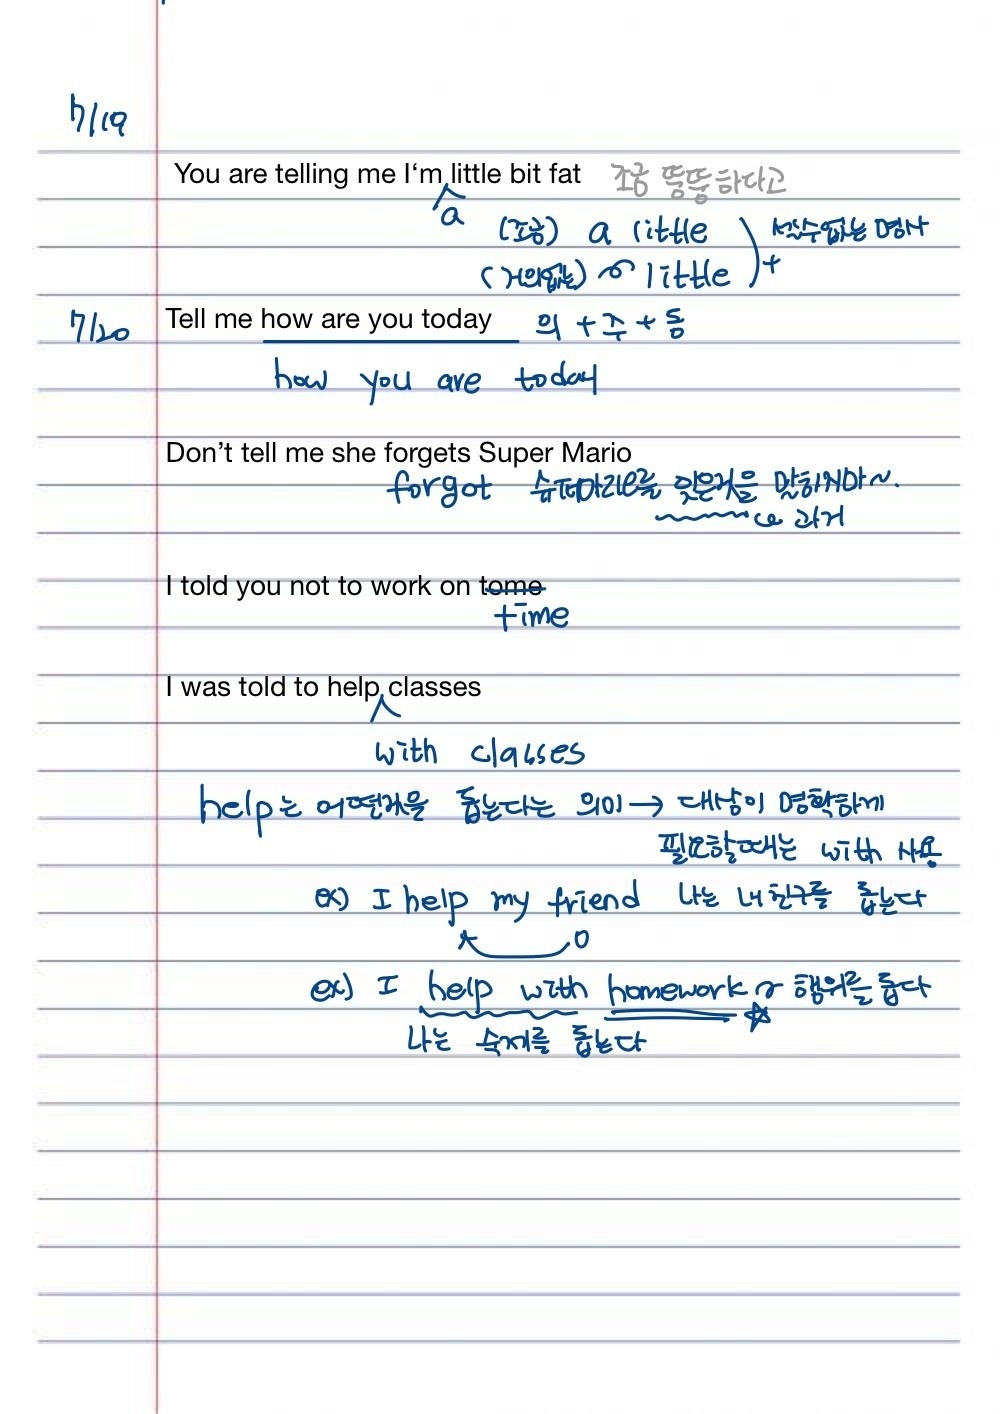 7/19
You are telling me I'm little bit fat 조금 뚱뚱하다고
a
(조금) a little
셀수없는 명사
(거의없는) little
+
7/20 Tell me how are you today 의 + 주 + 동
how you are today
Don't tell me she forgets Super Mario
forgot 슈퍼마리오를 잊은것을 말하지마~.
과거
I told you not to work on tome
time
I was told to help classes
with classes
help는 어떤것을 돕는다는 의미 → 대상이 명확하게
필요할때는 with 사용
ex) I help my friend 나는 내 친구를 돕는다
ex) I help with homework 행위를 돕다
나는 숙제를 돕는다